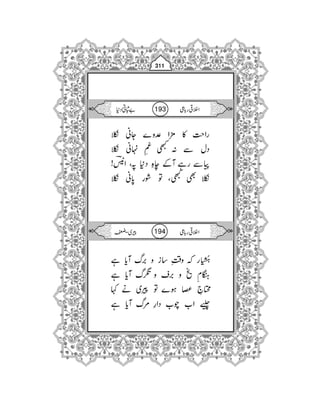 311
اخلاقی رباعی 193 بے ثباتیِ دنیا
راحت کا مزا عدوے جانی نکلا
دل سے نہ کبھی غمِ نہانی نکلا
پیاسے رہے آکے چاہِ دنیا پہ، انیسؔ!
نکلا بھی کبھی، تو شور پانی نکلا
اخلاقی رباعی 194 پیری، ضعف
ہشیار کہ وقتِ ساز و برگ آیا ہے
ہنگامِ یخ و برف و تگرگ آیا ہے
محتاجِ عصا ہوے تو پیری نے کہا
چلیے اب چوب دارِ مرگ آیا ہے